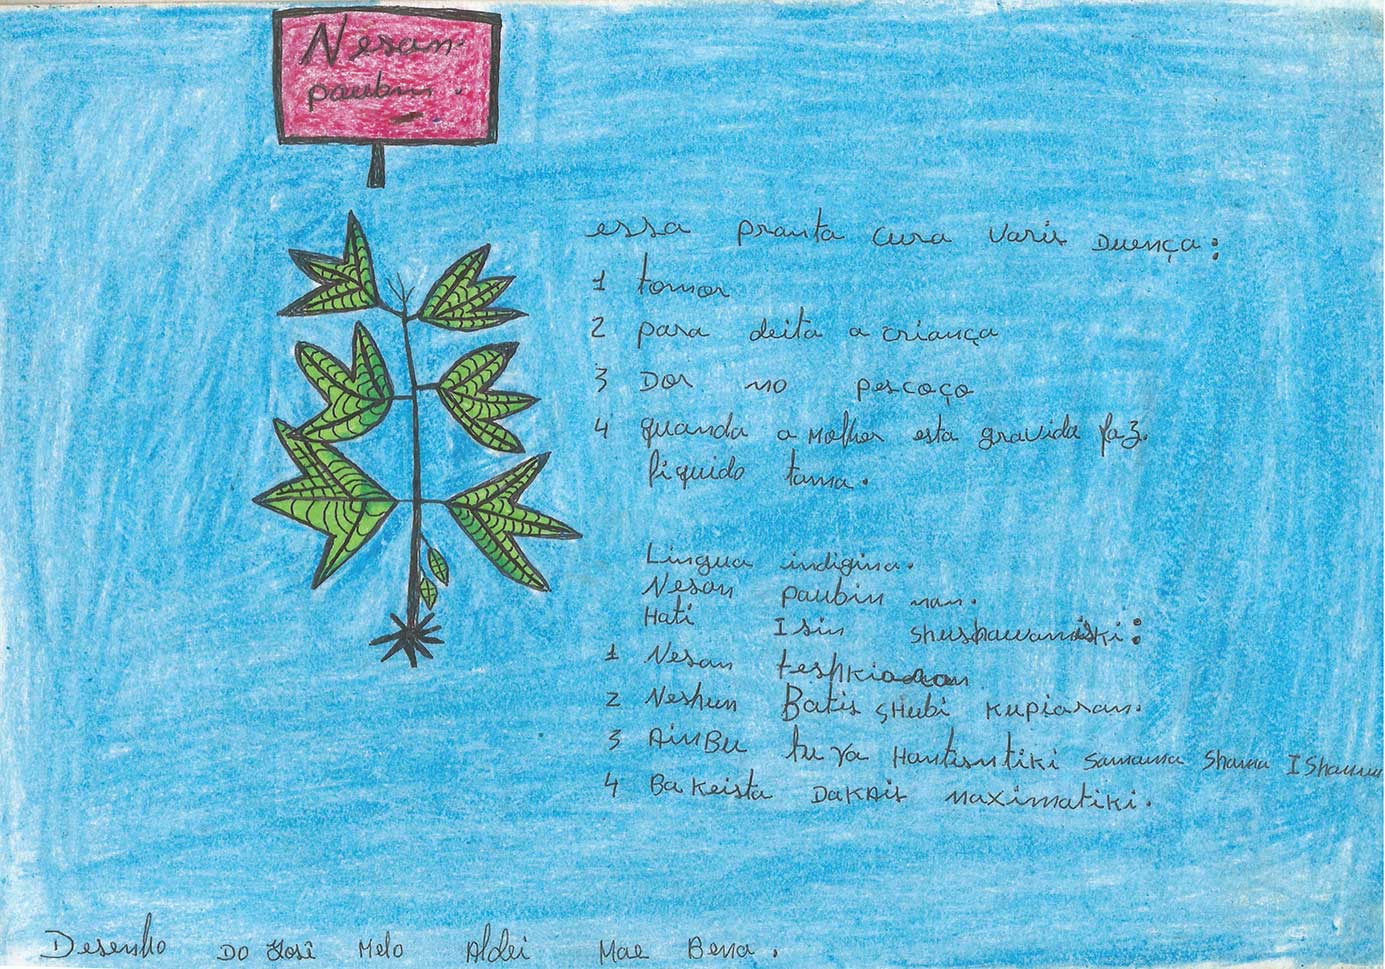 Nesan
paubin.
essa pranta cura varis Duença:
1 tomor
2 para deita a criança
3 Dor no pescoço
4 quanda a Molher esta gravida faz.
liquido tama.
Lingua indigina.
Nesan paubin nan.
Hati Isin
1 Nesan
2 Neshun Batis sHubi kupiaran.
3 AinBu tuya Hantisntiki samama shama IShanu
4 Bakeista DaKAis naximatiki.
Desenho Do José Melo Aldei Mae Bena.